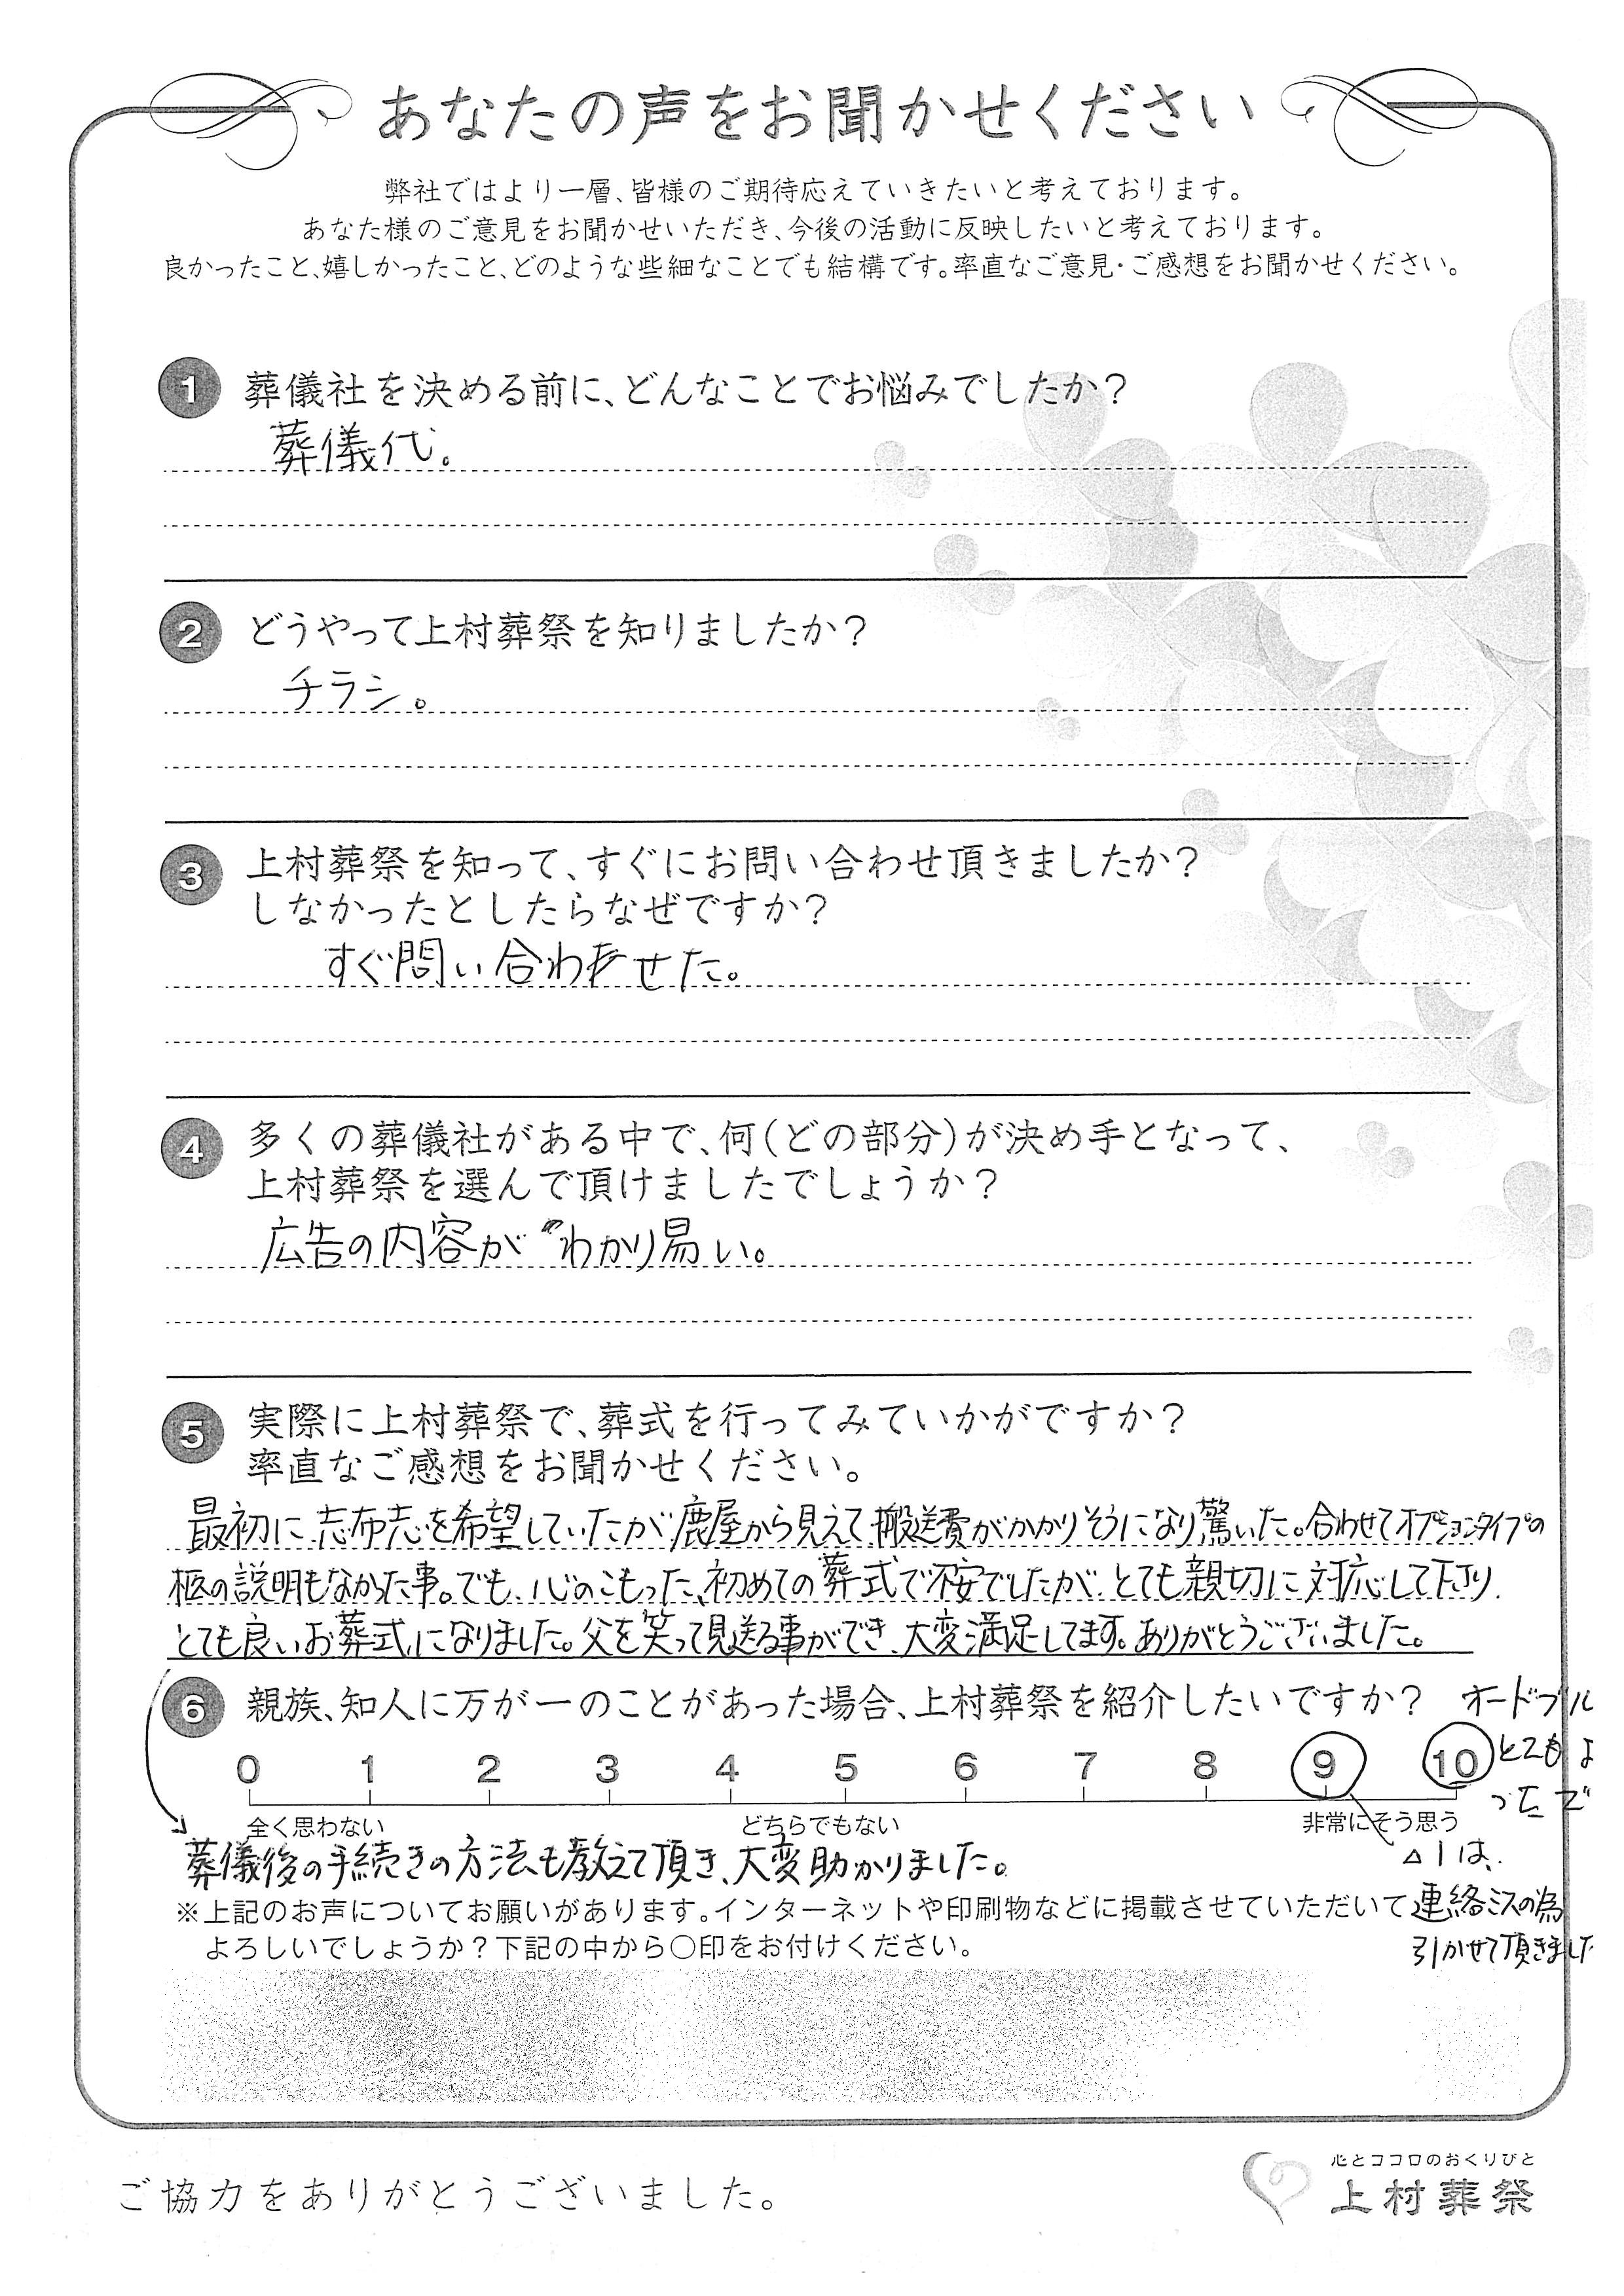 あなたの声をお聞かせください
弊社ではより一層、皆様のご期待応えていきたいと考えております。
あなた様のご意見をお聞かせいただき、今後の活動に反映したいと考えております。
良かったこと、嬉しかったこと、どのような些細なことでも結構です。率直なご意見・ご感想をお聞かせください。
1 葬儀社を決める前に、どんなことでお悩みでしたか?
葬儀代。
2 どうやって上村葬祭を知りましたか?
チラシ。
3 上村葬祭を知って、すぐにお問い合わせ頂きましたか?
しなかったとしたらなぜですか?
すぐ問い合わせた。
4 多くの葬儀社がある中で、何(どの部分)が決め手となって、
上村葬祭を選んで頂けましたでしょうか?
広告の内容がわかり易い。
5 実際に上村葬祭で、葬式を行ってみていかがですか?
率直なご感想をお聞かせください。
最初に、志布志を希望していたが鹿屋から見えて、搬送費がかかりそうになり驚いた。合わせてオプションタイプの
柩の説明もなかった事。でも、心のこもった、初めての葬式で不安でしたが、とても親切に対応して下さり、
とても良いお葬式になりました。父を笑って見送る事ができ、大変満足してます。ありがとうございました。
6 親族、知人に万が一のことがあった場合、上村葬祭を紹介したいですか?
オードブル
とてもよ
ったで
0 1 2 3 4 5 6 7 8 9 10
全く思わない どちらでもない 非常にそう思う
葬儀後の手続きの方法も教えて頂き、大変助かりました。
△1は、
連絡ミスの為
引かせて頂きました
※上記のお声についてお願いがあります。インターネットや印刷物などに掲載させていただいて
よろしいでしょうか?下記の中から○印をお付けください。
ご協力をありがとうございました。
心とココロのおくりびと
上村葬祭